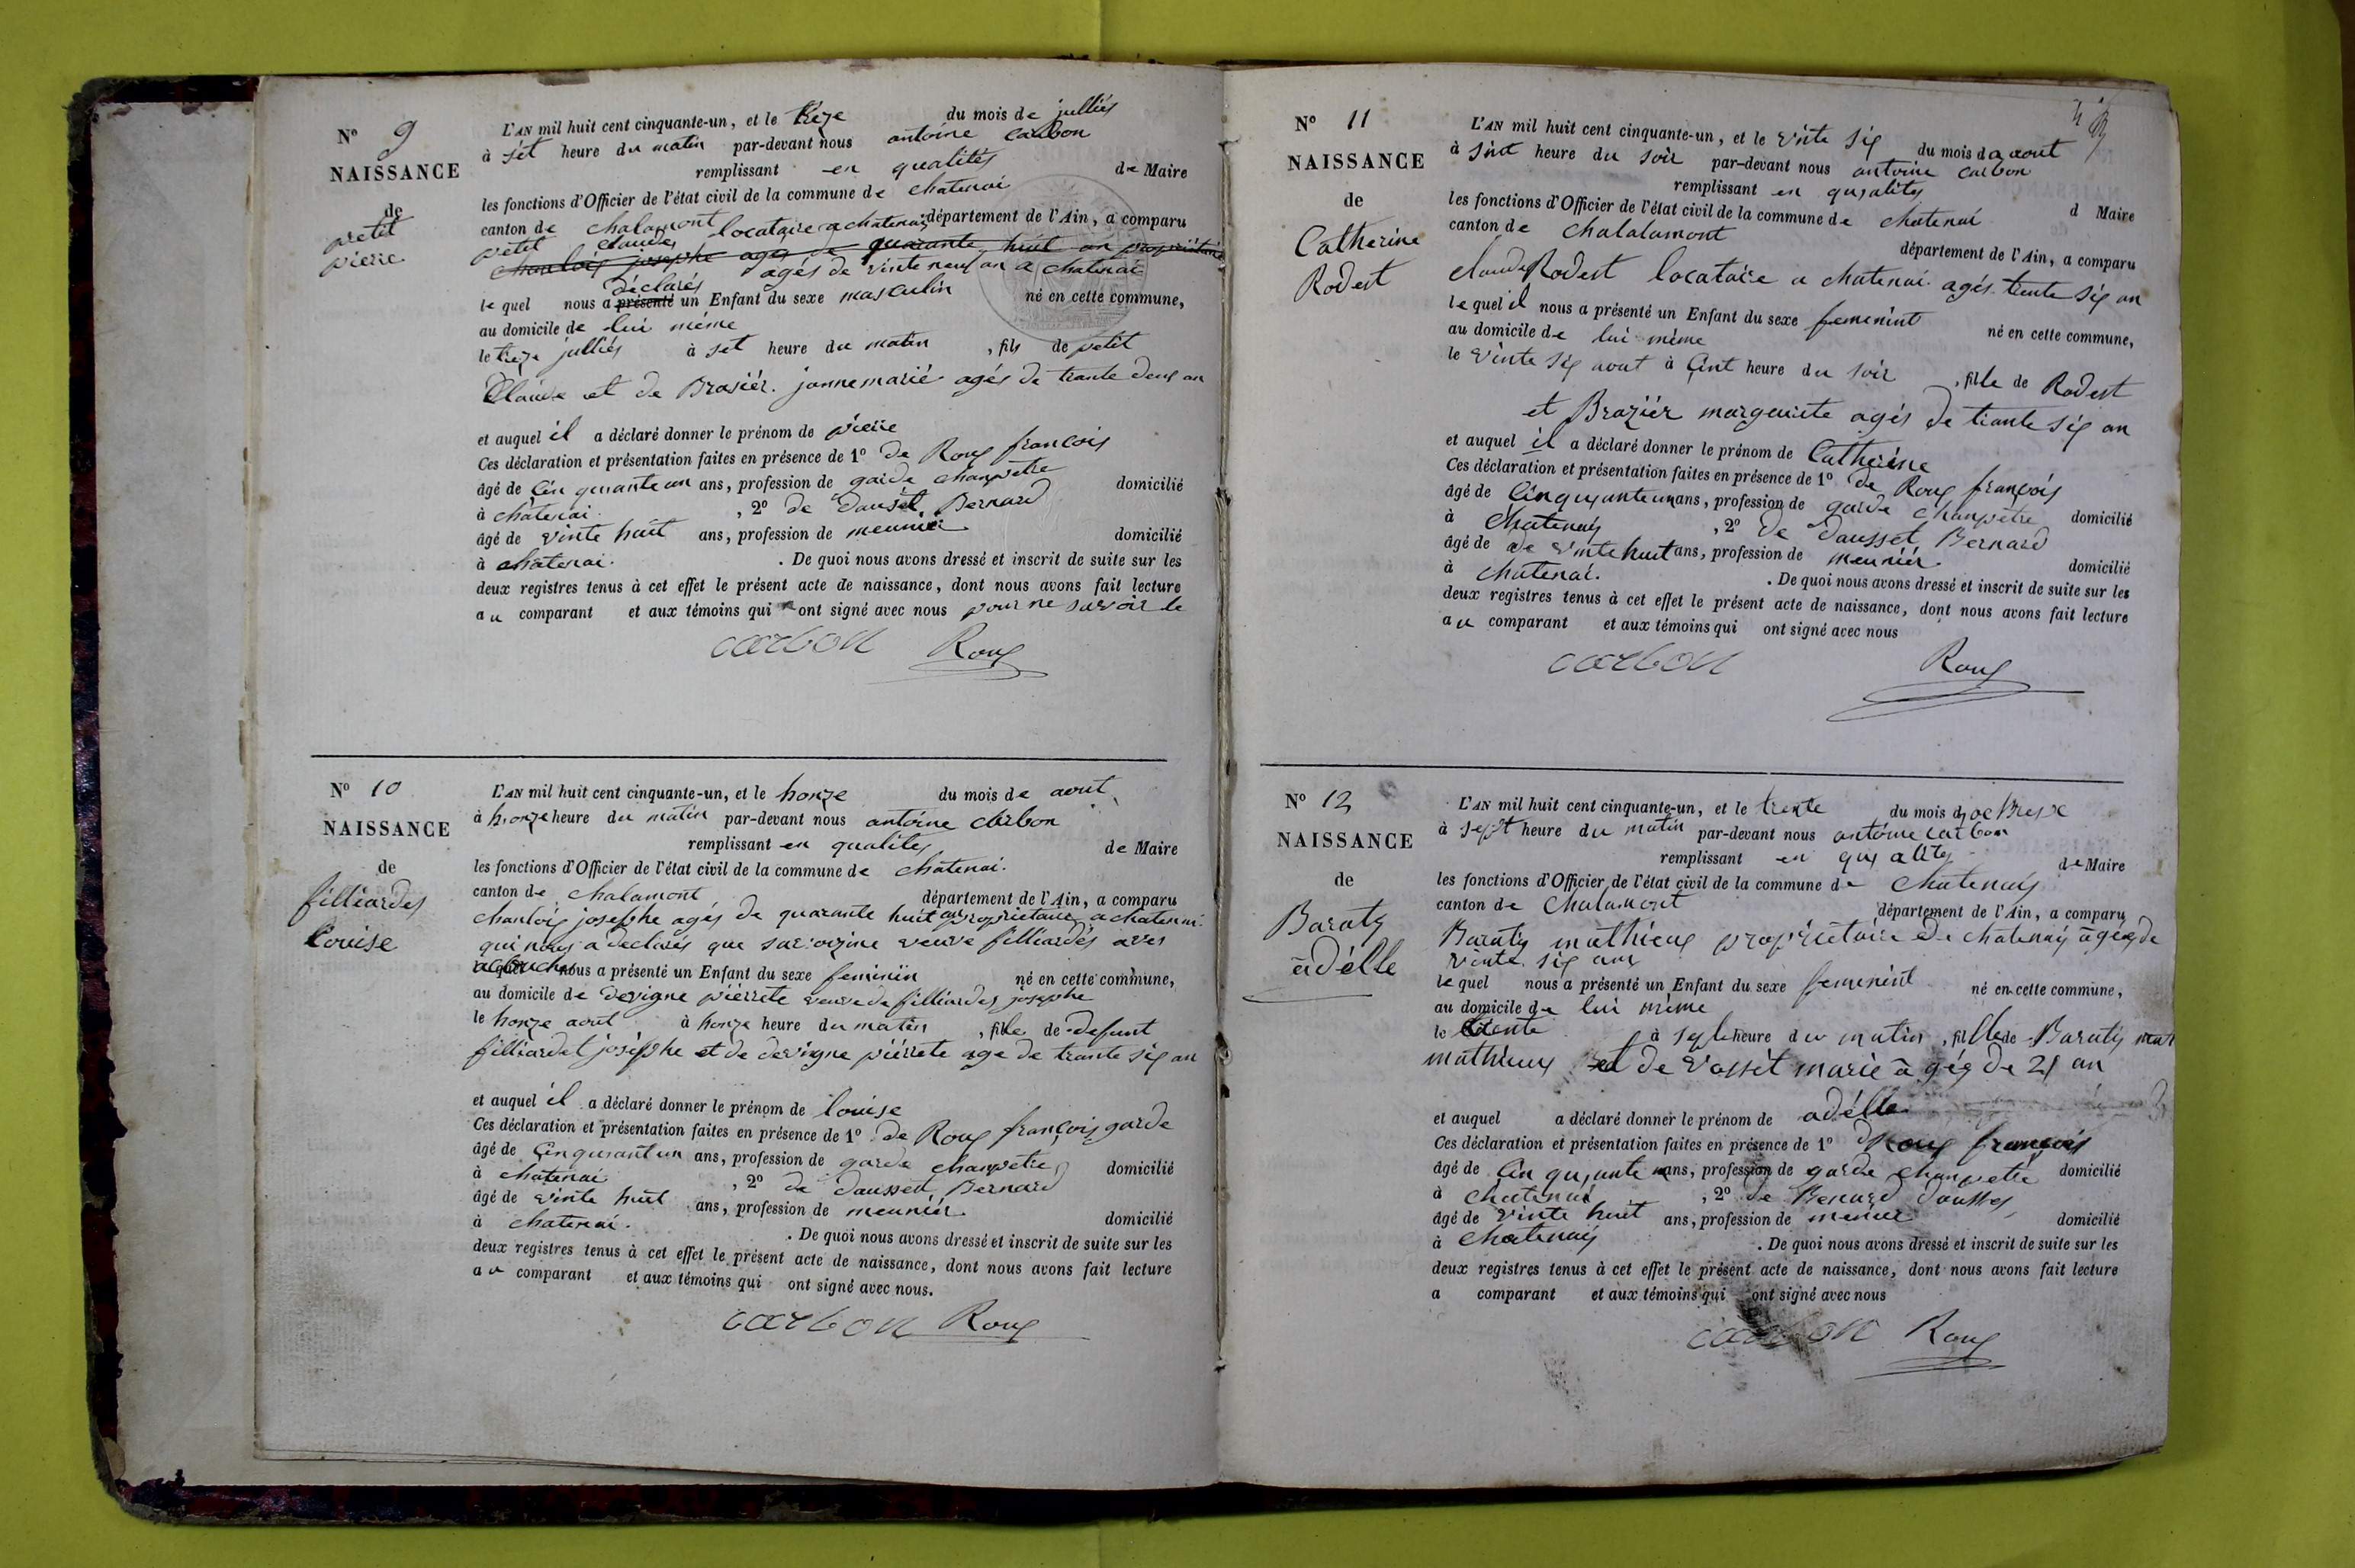 N° 9
NAISSANCE
de
petit
pierre
L'AN mil huit cent cinquante-un, et le treze du mois de julliés
à set heure du matin par-devant nous antoine carbon
remplissant en qualités de Maire
les fonctions d'Officier de l'état civil de la commune de chatenai
canton de chalamont département de l'Ain, a comparu
petit claude locataire a chatenai
chanlois josephe ages de quarante huit an propriétaire
agés de vinte neuf an a chatenai
déclarés
le quel nous a présenté un Enfant du sexe masculin né en cette commune,
au domicile de lui méme
le treze julliés à set heure du matin , fils de petit
Claude et de Brasiér jannemarié agés de trante deux an
et auquel il a déclaré donner le prénom de pierre
Ces déclaration et présentation faites en présence de 1° de Roux françois
âgé de cin quranteun ans, profession de garde chanpétre domicilié
à chatenai , 2° de dauset Bernard
âgé de vinte huit ans, profession de meuniér domicilié
à chatenai. . De quoi nous avons dressé et inscrit de suite sur les
deux registres tenus à cet effet le présent acte de naissance, dont nous avons fait lecture
au comparant et aux témoins qui n ont signé avec nous pour ne savoir le
carbon Roux
N° 10
NAISSANCE
de
filliardes
louise
L'AN mil huit cent cinquante-un, et le honze du mois de aout
à honze heure du matin par-devant nous antoine carbon
remplissant en qualites de Maire
les fonctions d'Officier de l'état civil de la commune de chatenai.
canton de chalamont département de l'Ain, a comparu
chanlois josephe agés de quarante huit an propriétaire a chatenai
qui nous a declarés que veuve filliardés
le quel nous a présenté un Enfant du sexe feminin né en cette commune,
au domicile de devigne piérrete veuve de filliardes josephe
le honze aout à honze heure du matin , fille de defunt
filliardet josephe et de devigne piérrete age de trante six an
et auquel il a déclaré donner le prénom de louise
Ces déclaration et présentation faites en présence de 1° de Roux françois garde
âgé de Cinqurantun ans, profession de garde chanpétre domicilié
à chatenai , 2° de dausset Bernard
âgé de vinte huit ans, profession de meuniér domicilié
à chatenai. . De quoi nous avons dressé et inscrit de suite sur les
deux registres tenus à cet effet le présent acte de naissance, dont nous avons fait lecture
au comparant et aux témoins qui ont signé avec nous.
carbon Roux
N° 11
NAISSANCE
de
Catherine
Rodest
L'AN mil huit cent cinquante-un, et le vinte six du mois da aout
à sint heure du soir par-devant nous antoine carbon
remplissant en quralites d Maire
les fonctions d'Officier de l'état civil de la commune de chatenai
canton de chalalamont département de l'Ain, a comparu
claude Rodest locataire a chatenai agés trente six an
le quel il nous a présenté un Enfant du sexe femenint né en cette commune,
au domicile de lui même
le vinte six aout à Cint heure du soir , fille de Rodest
et Braziér marguerite agés de trante six an
et auquel il a déclaré donner le prénom de Catherine
Ces déclaration et présentation faites en présence de 1° de Roux françois
âgé de Cinqurante un ans, profession de garde chanpétre domicilié
à Chatenay , 2° de dausset Bernard
âgé de de vinte huit ans, profession de meuniér domicilié
à chatenai. . De quoi nous avons dressé et inscrit de suite sur les
deux registres tenus à cet effet le présent acte de naissance, dont nous avons fait lecture
au comparant et aux témoins qui ont signé avec nous
carbon Roux
N° 12
NAISSANCE
de
Baraty
adélle
L'AN mil huit cent cinquante-un, et le trente du mois d
à sept heure du matin par-devant nous antoine carbon
remplissant en de Maire
les fonctions d'Officier de l'état civil de la commune de Chatenay
canton de Chalamont département de l'Ain, a comparu
Baraty mathieux propriétaire de chatenay agés de
vinte six ans
le quel nous a présenté un Enfant du sexe femenint né en cette commune,
au domicile de lui même
le trente à sept heure du matin , fille de Baraty mat
mathieux et de Vassit marie agés de 21 an
et auquel a déclaré donner le prénom de adélle
Ces déclaration et présentation faites en présence de 1° d Roux françois
âgé de Cin qurante un ans, profession de garde chanpetre domicilié
à chatenai , 2° de Benard dausses
âgé de vinte huit ans, profession de domicilié
à Chatenay . De quoi nous avons dressé et inscrit de suite sur les
deux registres tenus à cet effet le présent acte de naissance, dont nous avons fait lecture
a comparant et aux témoins qui ont signé avec nous
carbon Roux